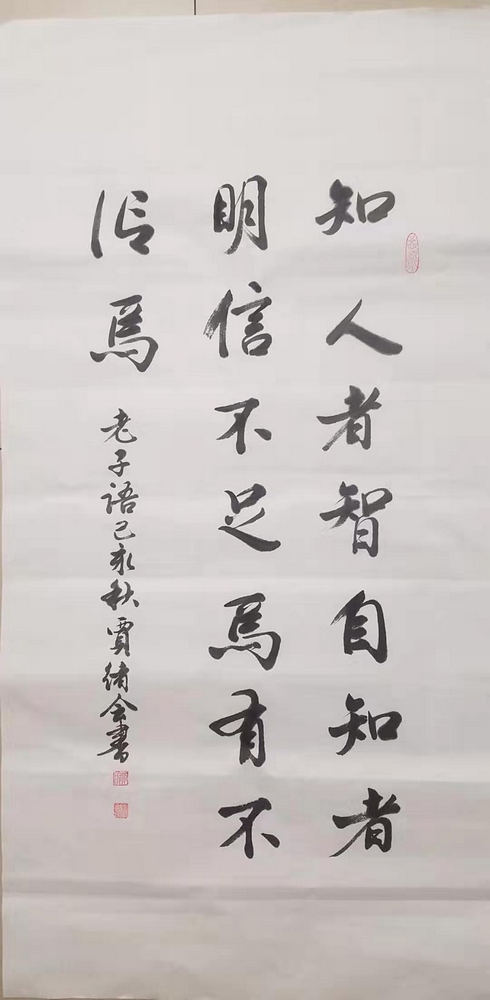 知人者智自知者
明信不足焉有不
信焉
老子语己亥秋贾绪会书